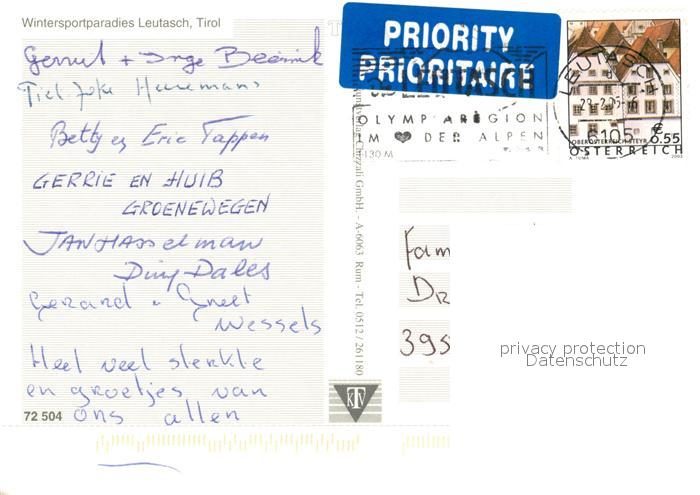 Wintersportparadies Leutasch, Tirol
Gerrit + Inge Beernink
Tiel Joke Heuremans
Betty en Eric Tappen
GERRIE EN HUIB
GROENEWEGEN
JAN HASSELMAN
Diny Dales
Gerard + Greet
Wessels
Heel veel sterkte
en groetjes van
ons allen
72 504
KTV
Chizzali GmbH. - A-6063 Rum - Tel. 0512 / 261180
PRIORITY
PRIORITAIRE
LEUTASCH
OLYMPIAREGION
IM DER ALPEN
130 M
LEUTASCH
6105
OBERÖSTERREICH STEYR
€ 0.55
ÖSTERREICH
2003
Fam
395
privacy protection
Datenschutz